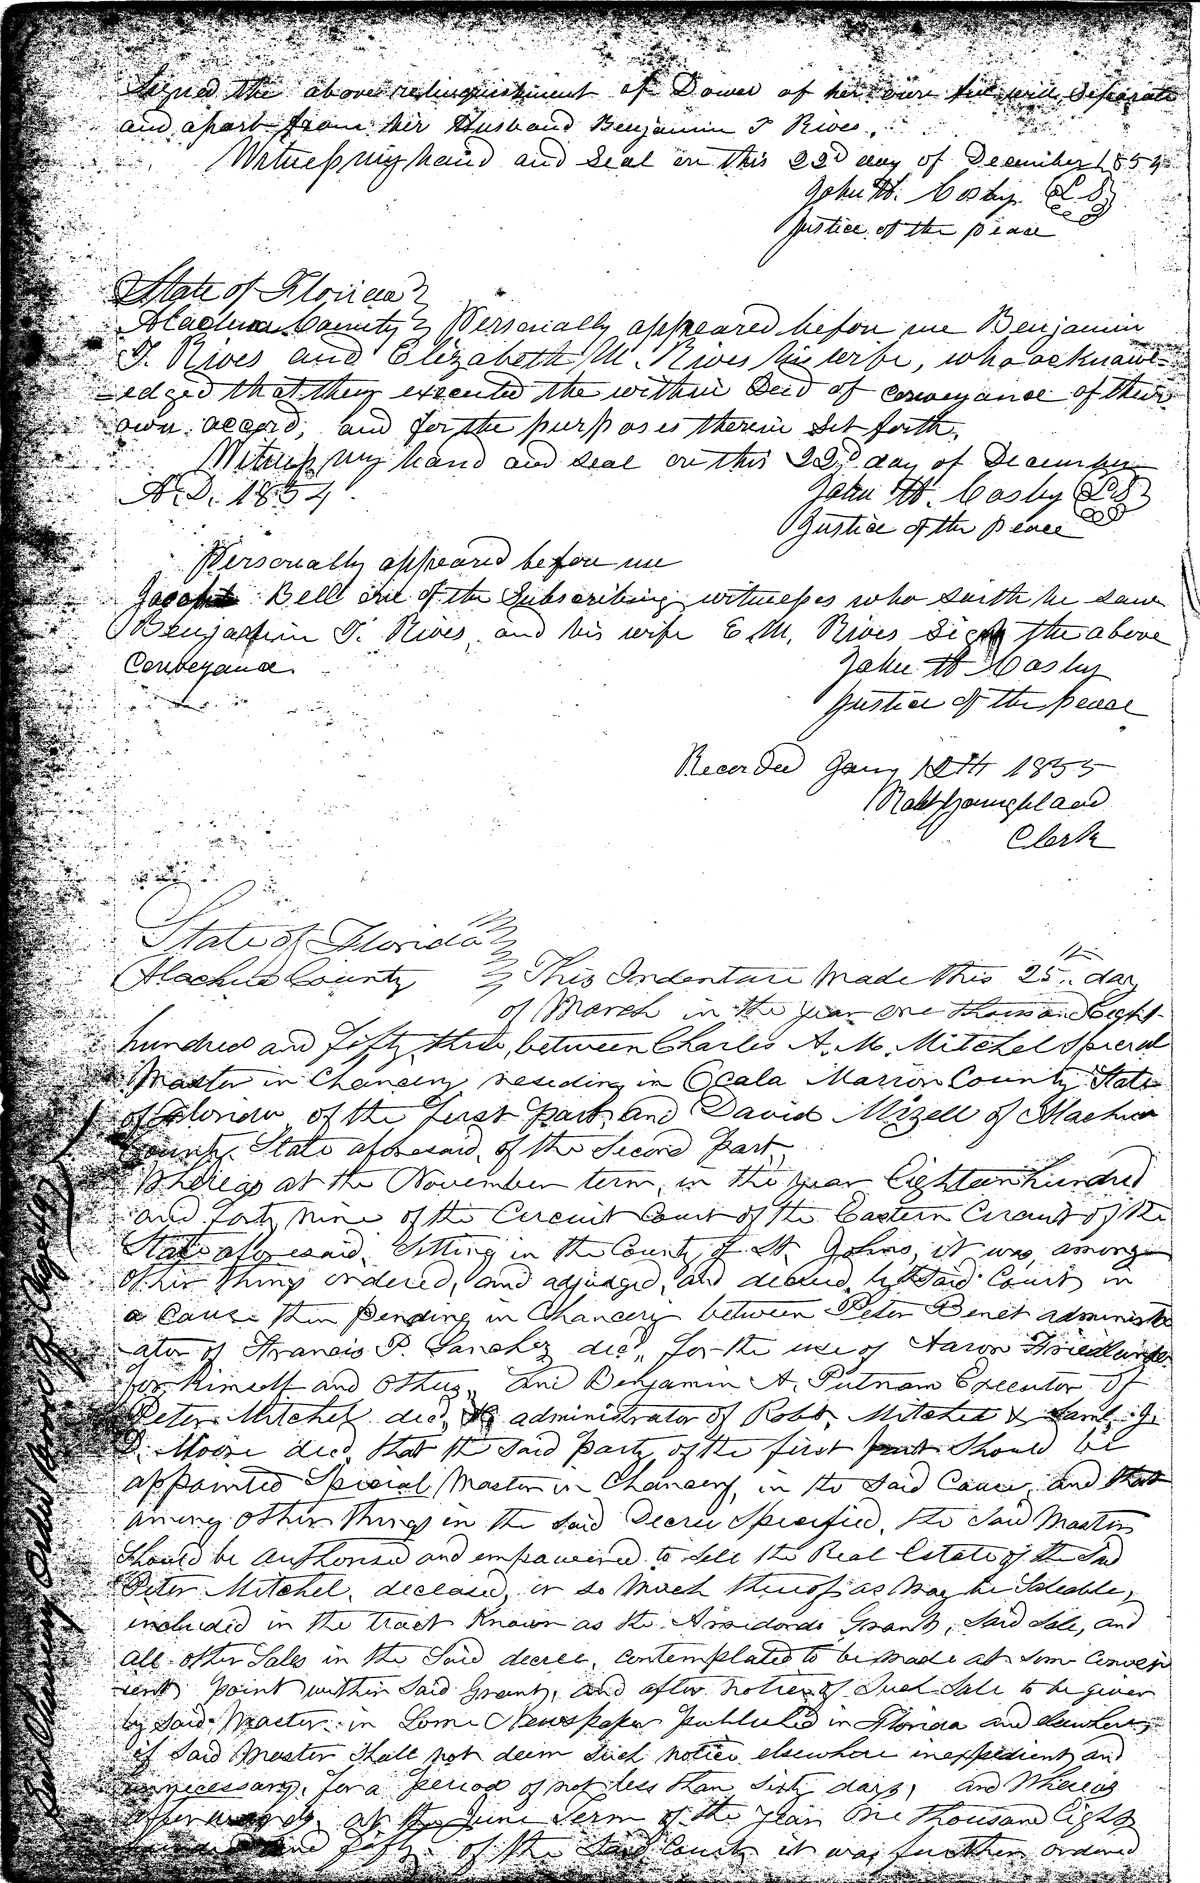 Signed the above relinquishment of Dower of her own free will, Separate
and apart from her Husband Benjamin T Rives.
Witness my hand and Seal on this 22d day of December 1854
John W. Cosby L S
Justice of the peace
State of Florida
Alachua County Personally appeared before me Benjamin
T. Rives and Elizabeth M. Rives his wife, who acknowl-
-edged that they executed the within Deed of conveyance of their
own accord, and for the purposes therein Set forth.
Witness my hand and seal on this 22d day of December
A.D. 1854. John W. Cosby L S
Justice of the peace
Personally appeared before me
Bell one of the Subscribing witnesses who saith he saw
Benjamin T. Rives, and his wife E M. Rives Sign the above
Conveyance. John W Cosby
Justice of the peace
Recorded Jany 12th 1855
Clerk
State of Florida
Alachua County This Indenture Made this 25th day
of March in the year one thousand Eight
hundred and fifty three, between Charles A. M. Mitchel Special
Master in Chancery residing in Ocala Marion County State
of Florida, of the first part, and David Mizell of Alachua
County State aforesaid, of the Second Part,
Whereas at the November term, in the year Eighteen hundred
and forty nine of the Circuit Court of the Eastern Circuit of the
State aforesaid, Sitting in the County of St. Johns, it was, among
other things ordered, and adjudged, and decreed, by said Court in
a cause then pending in Chancery between Peter Benet administr
ator of Francis P. Sanchez decd,, for the use of Aaron Friedlander
for himself and others,, and Benjamin A. Putnam Executor of
Peter Mitchel decd, & administrator of Robt. Mitchel & Saml. J.
D. Moore decd, that the said party of the first part should be
appointed Special Master in Chancery, in the said Cause, and that
among other things in the said Decree Specified, the said Master
Should be authorised and empowered to sell the Real Estate of the Said
Peter Mitchel, deceased, or so much thereof as may be Saleable,
included in the tract known as the Arredondo Grant, Said Sale, and
all other Sales in the Said decree, contemplated to be made at some conven
ient point within said Grant, and after notice of Such Sale to be given
by Said Master in Some Newspaper published in Florida and elsewhere,
if Said Master Shall not deem such notice elsewhere inexpedient and
unnecessary, for a period of not less than Sixty days, and Whereas
afterwards, at the June Term of the year One thousand Eight
hundred and fifty of the Said Court, it was further ordered
Order Book J. Page 497